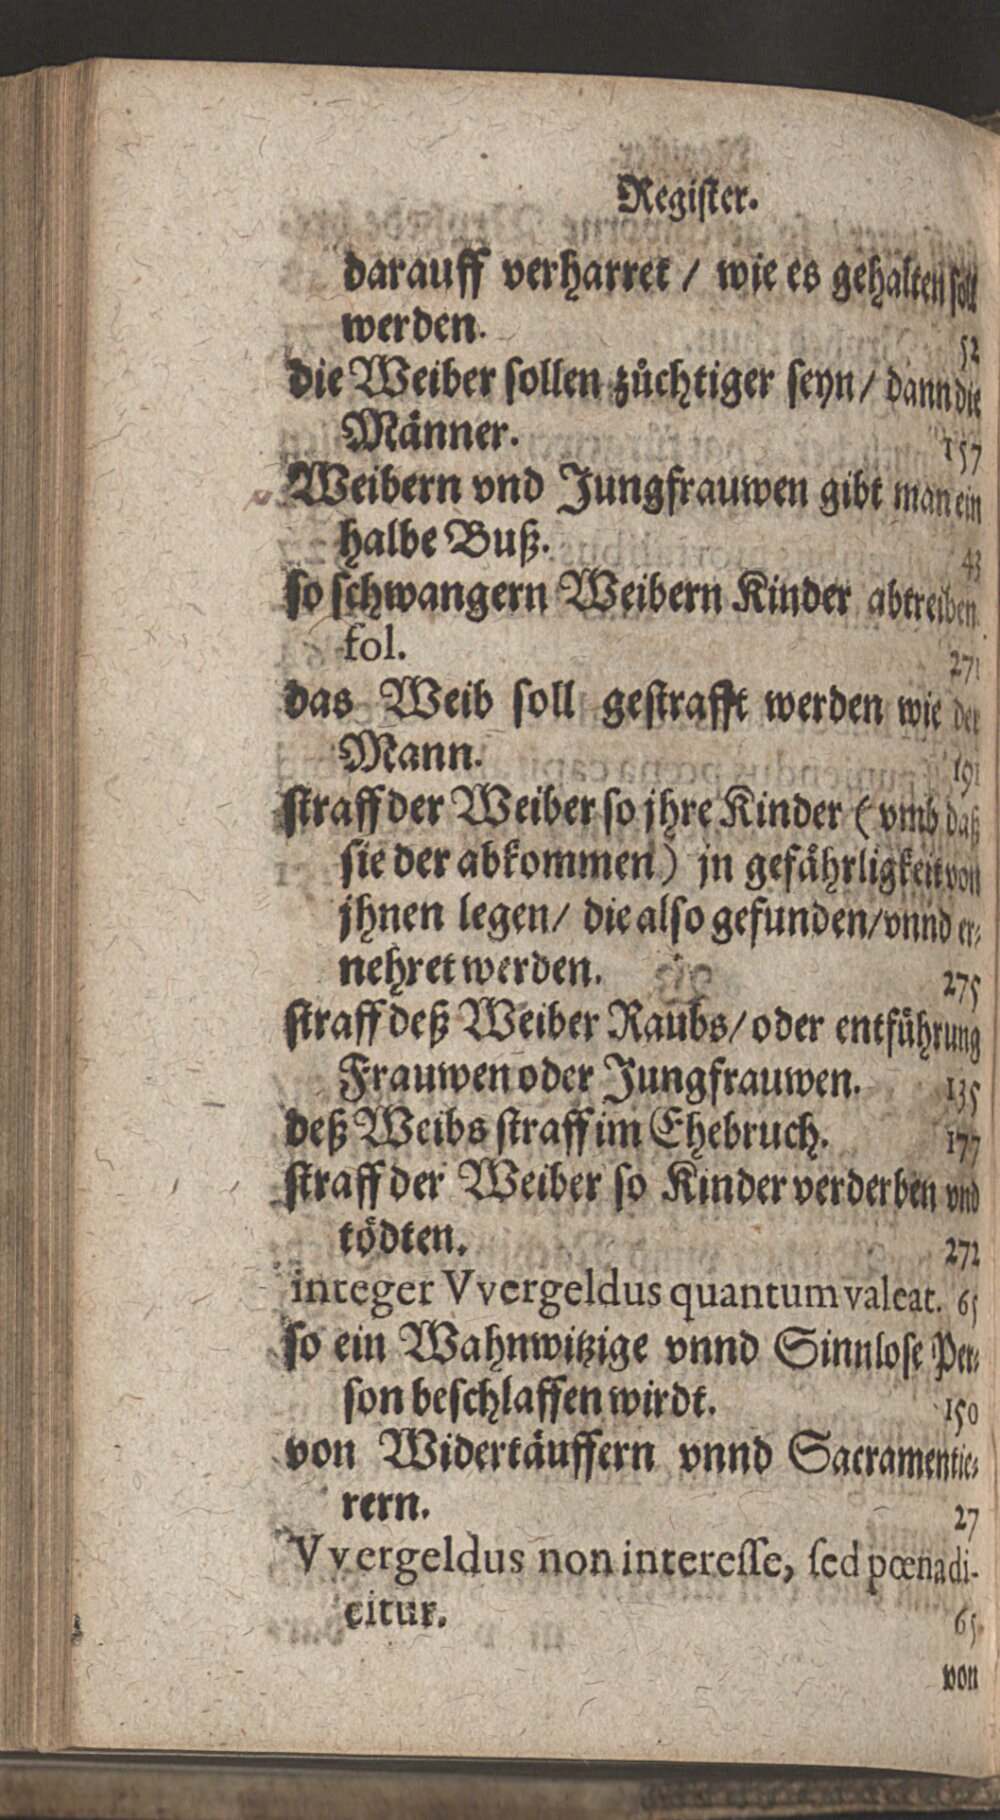 Register.
darauff verharret / wie es gehalten soll
werden. 52
die Weiber sollen züchtiger seyn / dann die
Männer. 157
Weibern vnd Jungfrauwen gibt man ein
halbe Buß. 43
so schwangern Weibern Kinder abtreiben
fol. 271
das Weib soll gestrafft werden wie der
Mann. 191
straff der Weiber so jhre Kinder ( vmb daß
sie der abkommen ) in gefährligkeit von
jhnen legen / die also gefunden / vnnd er-
nehret werden. 275
straff deß Weiber Raubs / oder entführung
Frauwen oder Jungfrauwen. 135
deß Weibs straff im Ehebruch. 177
straff der Weiber so Kinder verderben vnd
tödten. 272
integer Vvergeldus quantum valeat. 65
so ein Wahnwitzige vnnd Sinnlose Per-
son beschlaffen wirdt. 150
von Widertäuffern vnnd Sacramentie-
rern. 27
Vvergeldus non interesse, sed pœna di-
citur. 65
von